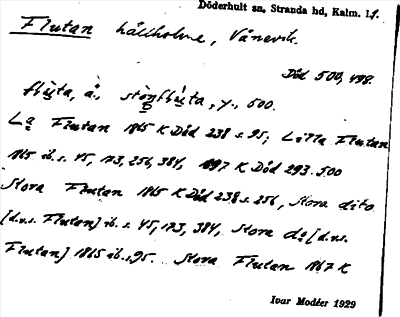 Döderhult sn, Stranda hd, Kalm. l.
Flutan hällholme, Vånevik.
Död 500, 498.
fluta, a., stöngfluta, y., 500.
La Flutan 1865 K Död 238 s. 95; Lilla Flutan
1865 ib. s. 45, 173, 256, 384, 1897 K Död 293. 500
Stora Flutan 1865 K Död 238 s. 256, Stora dito
[d.v.s. Flutan] ib. s. 45, 173, 384, Stora do [d.v.s.
Flutan] 1865 ib. s. 95. Stora Flutan 1867 K
Ivar Modéer 1929